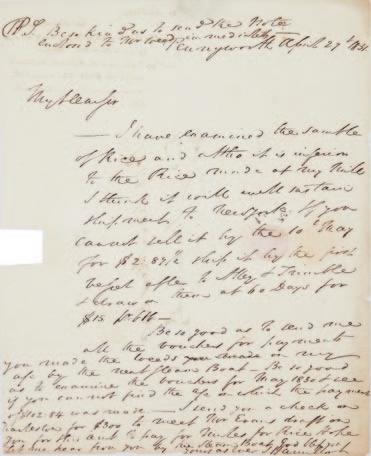 P.S. Be so kind as to send the Note
enclosed to Mr immediately
Pennyworth April 27th 1831
My dear Sir
— I have examined the sample
of Rice and altho it is inferior
to the Rice made at my Mill
I think it will well sustain
shipment to New York. If you
cannot sell it by the 10th May
for $2.87½ ship it by the first
vessel after to & Trimble
& draw on them at 60 Days for
$15
Be so good as to send me
all the vouchers for payments
you made the made on my
by the next Steam Boat. Be so good
as to examine the vouchers for May 1830 & see
if you cannot find the on which the payment
of $102.84 was made — I send you a check on
for $300 to meet Mr draft on
you for this amt to pay for for Rice Hope
let me hear from you by the Steam Boat